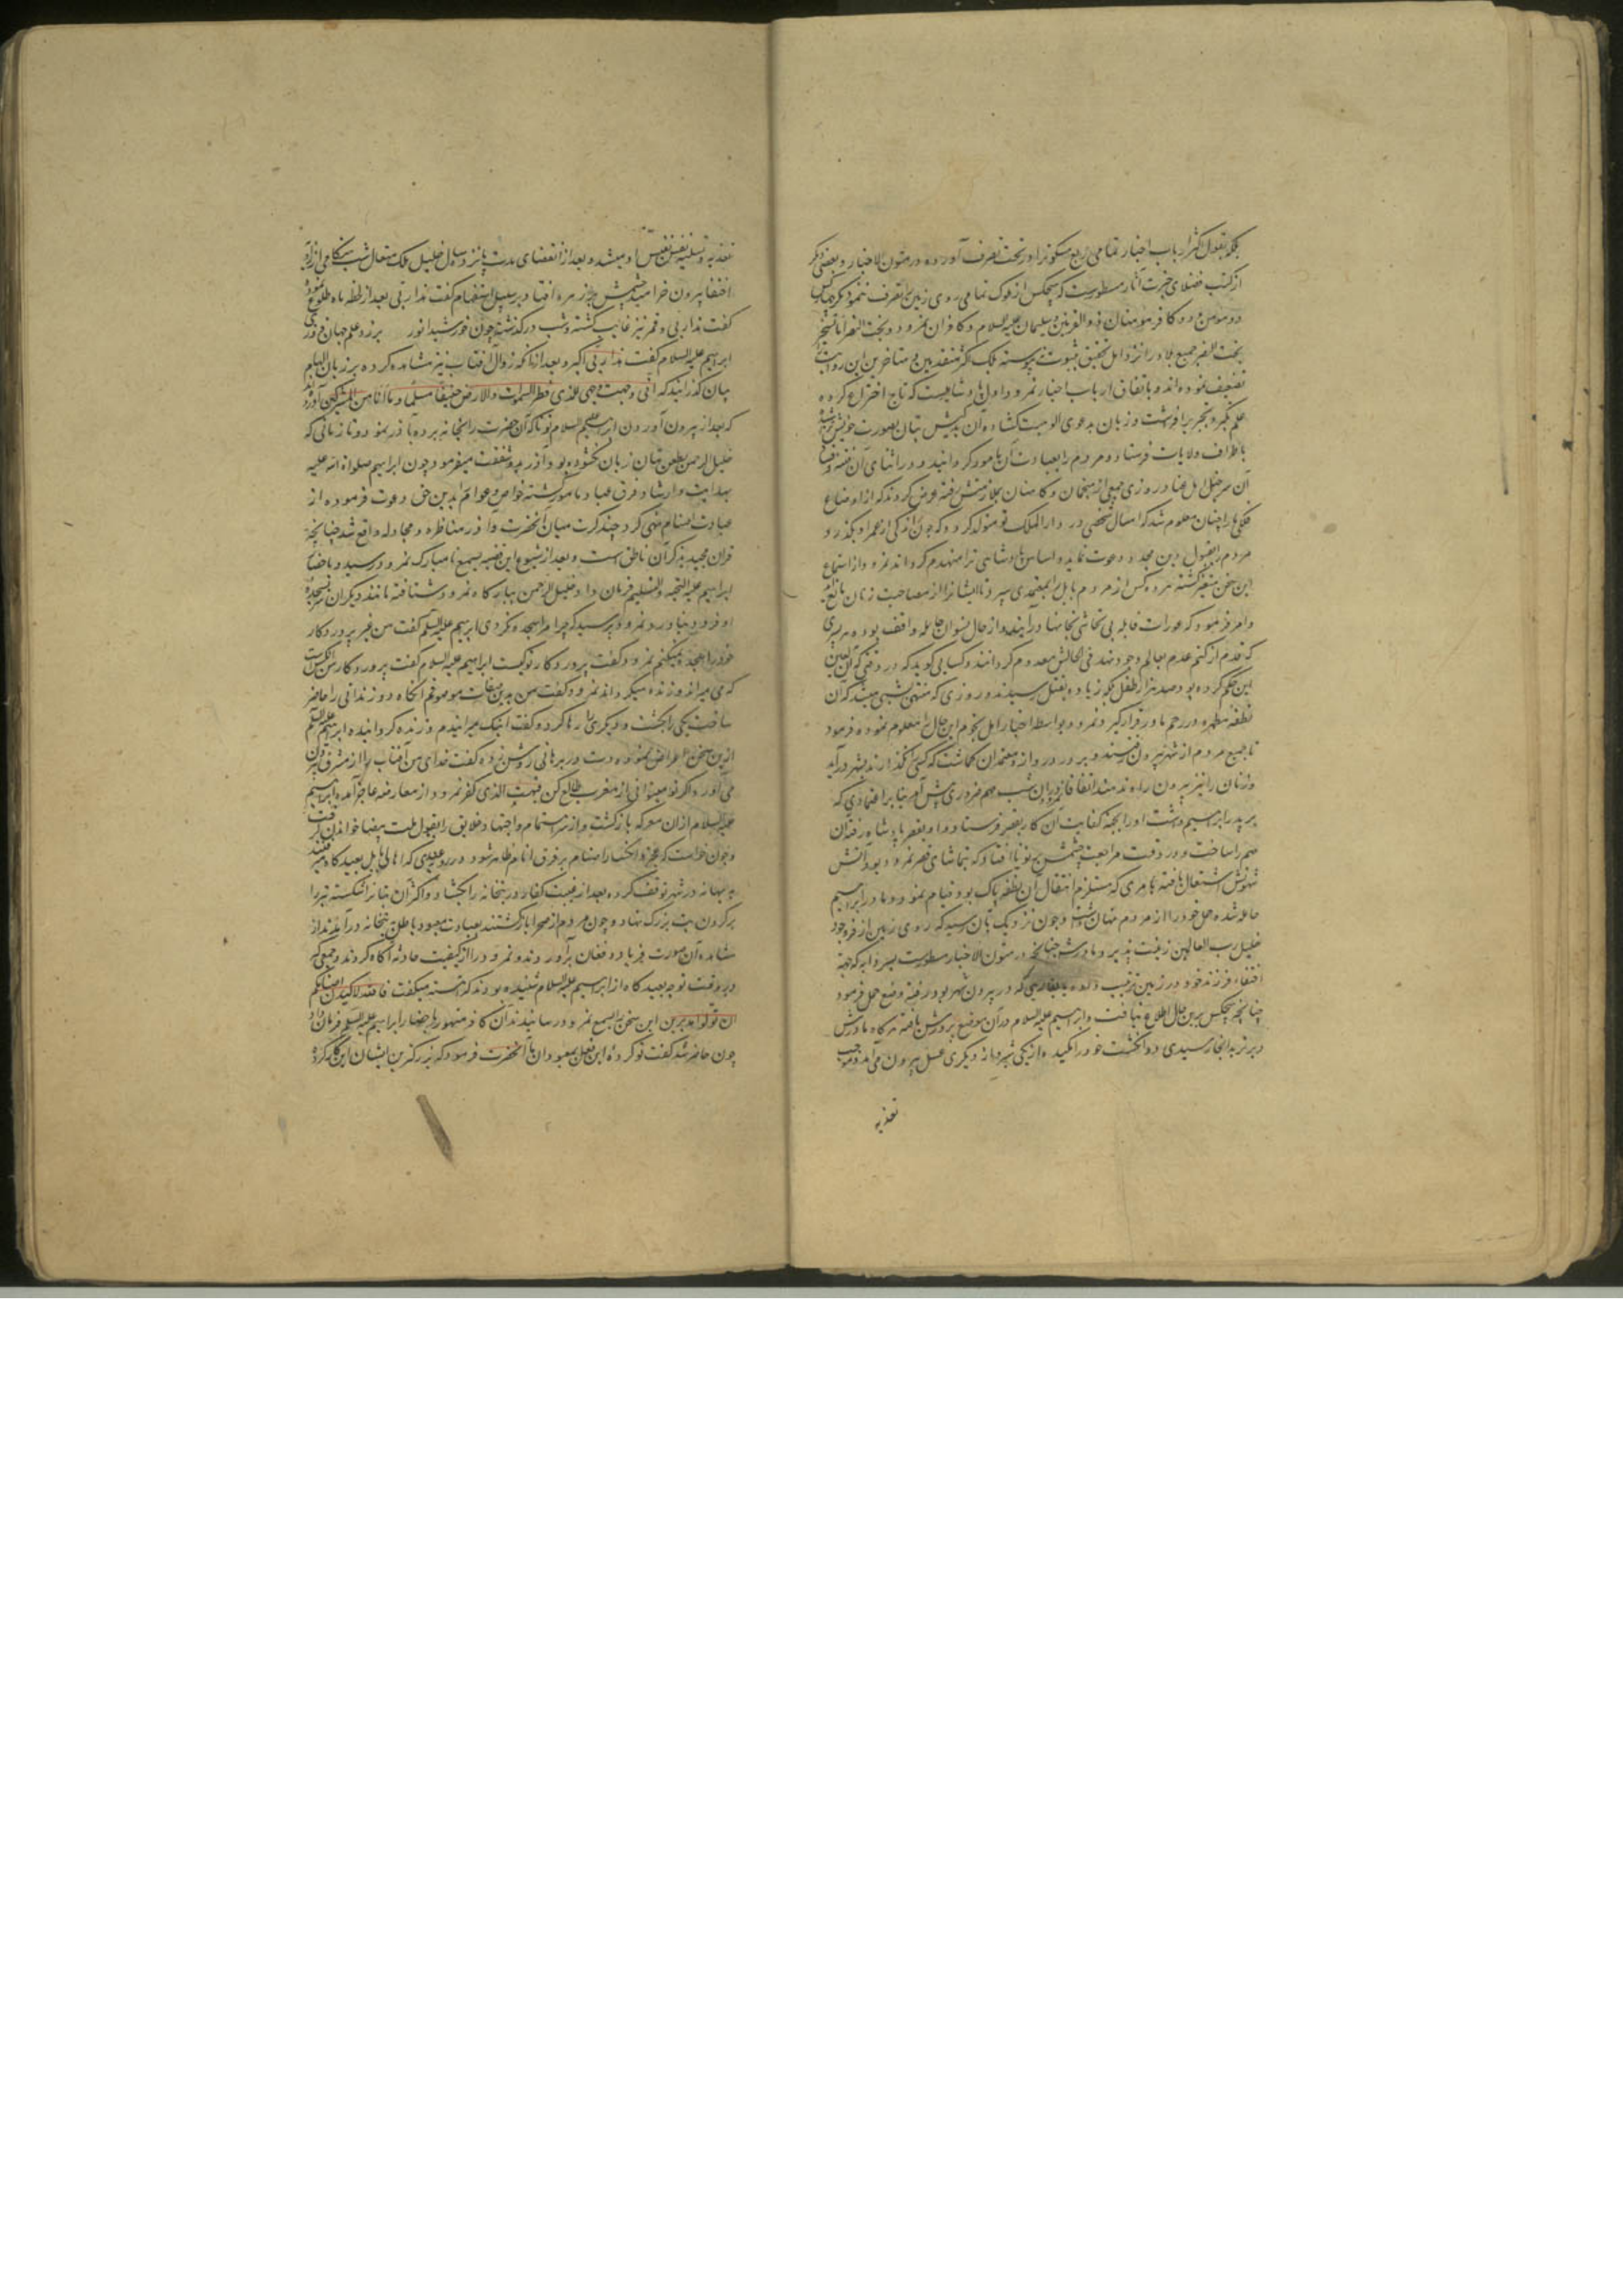 بلکه بقول اکثر ارباب اخبار تمامی ربع مسکونرا در تحت تصرف آورده در متون الاخبار و بعضی دیگر
از کتب فضلای خبرت آثار مسطورست که هیچکس از ملوک تمامی روی زمین را تصرف ننمود مگر چهار کس
دو مومن و دو کافر مومنان ذو القرنین و سلیمان علیه السلام و کافران نمرود و بخت النصر اما تسخیر
بخت النصر جمیع بلاد را نزد اهل تحقیق بثبوت نپیوسته بلک اکثر متقدمین و متاخرین این روایت را
تضعیف نموده‌اند و باتفاق ارباب اخبار نمرود اول پادشاهیست که تاج اختراع کرده
علم تکبر و تجبر برافرشت و زبان بدعوی الوهیت گشاده آن بدکیش بتان بصورت خویش تراشیده
باطراف ولایات فرستاد و مردم را بعبادت آن مامور گردانید و در اثنای آن
آن سرخیل اهل روزی جمعی از منجمان و کاهنان عرض کردند که از اوضاع
فلکی ما را چنان معلوم شد که امسال شخصی در دار الملک تو متولد گردد که چون اندکی از عمر او بگذرد
مردم را بقبول دین مجدد دعوت نماید و اساس پادشاهی ترا منهدم گرداند نمرود از استماع
این سخن متغیر گشته هر ده کس از مردم بابل را بمعتمدی سپرد تا ایشانرا از مصاحبت زنان مانع آید
و امر فرمود که عورات قابله بی تحاشی بخانها درآیند و از حال نسوان حامله واقف بوده هر پسری
که قدم از کتم عدم بعالم وجود نهد فی الحالش معدوم گردانند و کسایی گوید که در وقتی که آن لعین
این حکم کرده بود صد هزار طفل بلکه زیاده بقتل رسیدند و روزی که منتهی بشبی میشد که آن
نطفه مطهره در رحم مادر قرار گیرد نمرود بواسطه اخبار اهل نجوم این حال را معلوم نموده فرمود
تا جمیع مردم از شهر بیرون رفتند و بر در دروازه معتمدان گماشت که کسی نگذارند بشهر درآید
و زنان را نیز بیرون راه ندهند اتفاقا نمرود را در آن شب مهم ضروری پیش آمد بنا بر اعتمادی که
بر پدر ابراهیم داشت او را بجهة کفایت آن کار بقصر فرستاد و او بقصر پادشاه رفته آن
مهم را ساخت و در وقت مراجعت چشمش بر نونا افتاد که بتماشای قصر نمرود آمده بود آتش
شهوتش اشتعال یافته بامری که مستلزم انتقال آن نطفه پاک بود قیام نمود و مادر ابراهیم
حامله شده حمل خود را از مردم پنهان داشت و چون نزدیک بآن رسید که روی زمین از فر وجود
خلیل رب العالمین زینت پذیرد مادرش چنانچه در متون الاخبار مسطورست بسردابه که بجهة
اختفاء فرزند خود در زیر زمین ترتیب داده یا بغاری که در بیرون شهر بود رفته وضع حمل فرمود
چنانچه هیچکس برین حال اطلاع نیافت و ابراهیم علیه السلام در آن موضع پرورش یافته هرگاه مادرش
دیرتر بدانجا رسیدی دو انگشت خود را مکیده از یکی شیر و از دیگری عسل بیرون می‌آمد و موجب
تغذیه
تغذیه و تسلیه نفس نفیس او میشد و بعد از انقضای مدت پانزده سال خلیل ملک متعال شب هنگامی از زاویه
اختفا بیرون خرامید چشمش بر زهره افتاد بر سبیل استفهام گفت هذا ربی بعد از لحظه ماه طلوع نموده
گفت هذا ربی و قمر نیز غایب گشته و شب درگذشته چون خورشید انور برزد علم جهان فروزی
ابراهیم علیه السلام گفت هذا ربی اکبر و بعد از آنکه زوال آفتاب نیز مشاهده کرده بر زبان الهام
بیان گذرانید که انی وجهت وجهی للذی فطر السموات والارض حنیفا مسلما وما انا من المشرکین آورده‌اند
که بعد از بیرون آوردن ابراهیم علیه السلام نونا که آن حضرت را بخانه برده بآذر نمود و تا زمانی که
خلیل الرحمن بطعن بتان زبان نگشوده بود آزر بدو شفقت میفرمود چون ابراهیم صلواة الله علیه
بهدایت و ارشاد فرق عباد مامور گشته خواص و عوام را بدین حق دعوت فرموده از
عبادت اصنام نهی کرد چند کرت میان آنحضرت و آذر مناظره و مجادله واقع شد چنانچه
قران مجید بذکر آن ناطق است و بعد از شیوع این قضیه بسمع نامبارک نمرود رسید و باحضار
ابراهیم علیه التحیه والتسلیم فرمان داد و خلیل الرحمن ببارگاه نمرود شتافته مانند دیگران سر بسجده
او فرود نیاورد نمرود پرسید که چرا مرا سجده نکردی ابراهیم علیه السلم گفت من غیر پروردگار
خود را سجده نمیکنم نمرود گفت پروردگار تو کیست ابراهیم علیه السلام گفت پروردگار من آنکس است
که می میراند و زنده میگرداند نمرود گفت من بدین صفات موصوفم آنگاه دو زندانی را حاضر
ساخت یکی را بکشت و دیگری را رها کرد و گفت اینک میرانیدم و زنده گردانیده ابراهیم علیه السلم
ازین سخن اعراض نموده دست در برهانی روشن زده گفت خدای من آفتاب را از مشرق بیرون
می‌آورد اگر تو میتوانی از مغرب طالع کن فبهت الذی کفر نمرود از معارضه عاجز آمده ابراهیم
علیه السلام ازان معرکه بازگشت و از سر اهتمام و اجتهاد خلایق را بقبول ملت بیضا خواندن گرفت
و چون خواست که عجز و انکسار اصنام بر فرق انام ظاهر شود در روز عیدی که اهالی بابل بعیدگاه میرفتند
به بهانه در شهر توقف کرده بعد از غیبت کفار در بتخانه را بگشاد و اکثر آن بتانرا شکسته تبر را
بر گردن بت بزرگ نهاد و چون مردم از صحرا بازگشتند بعبادت معبود باطل به بتخانه درآمدند از
مشاهده آن صورت فریاد و فغان برآوردند و نمرود را از کیفیت حادثه آگاه کردند و جمعی که
در وقت توجه بعیدگاه از ابراهیم علیه السلام شنیده بودند که آهسته میگفت تالله لاکیدن اصنامکم
ان تولوا مدبرین این سخن را بسمع نمرود رسانیدند آن کافر مقهور باحضار ابراهیم علیه السلم فرمان داد
چون حاضر شد گفت تو کرده این فعل بمعبودان ما آنحضرت فرمود که بزرگترین ایشان این کار کرده